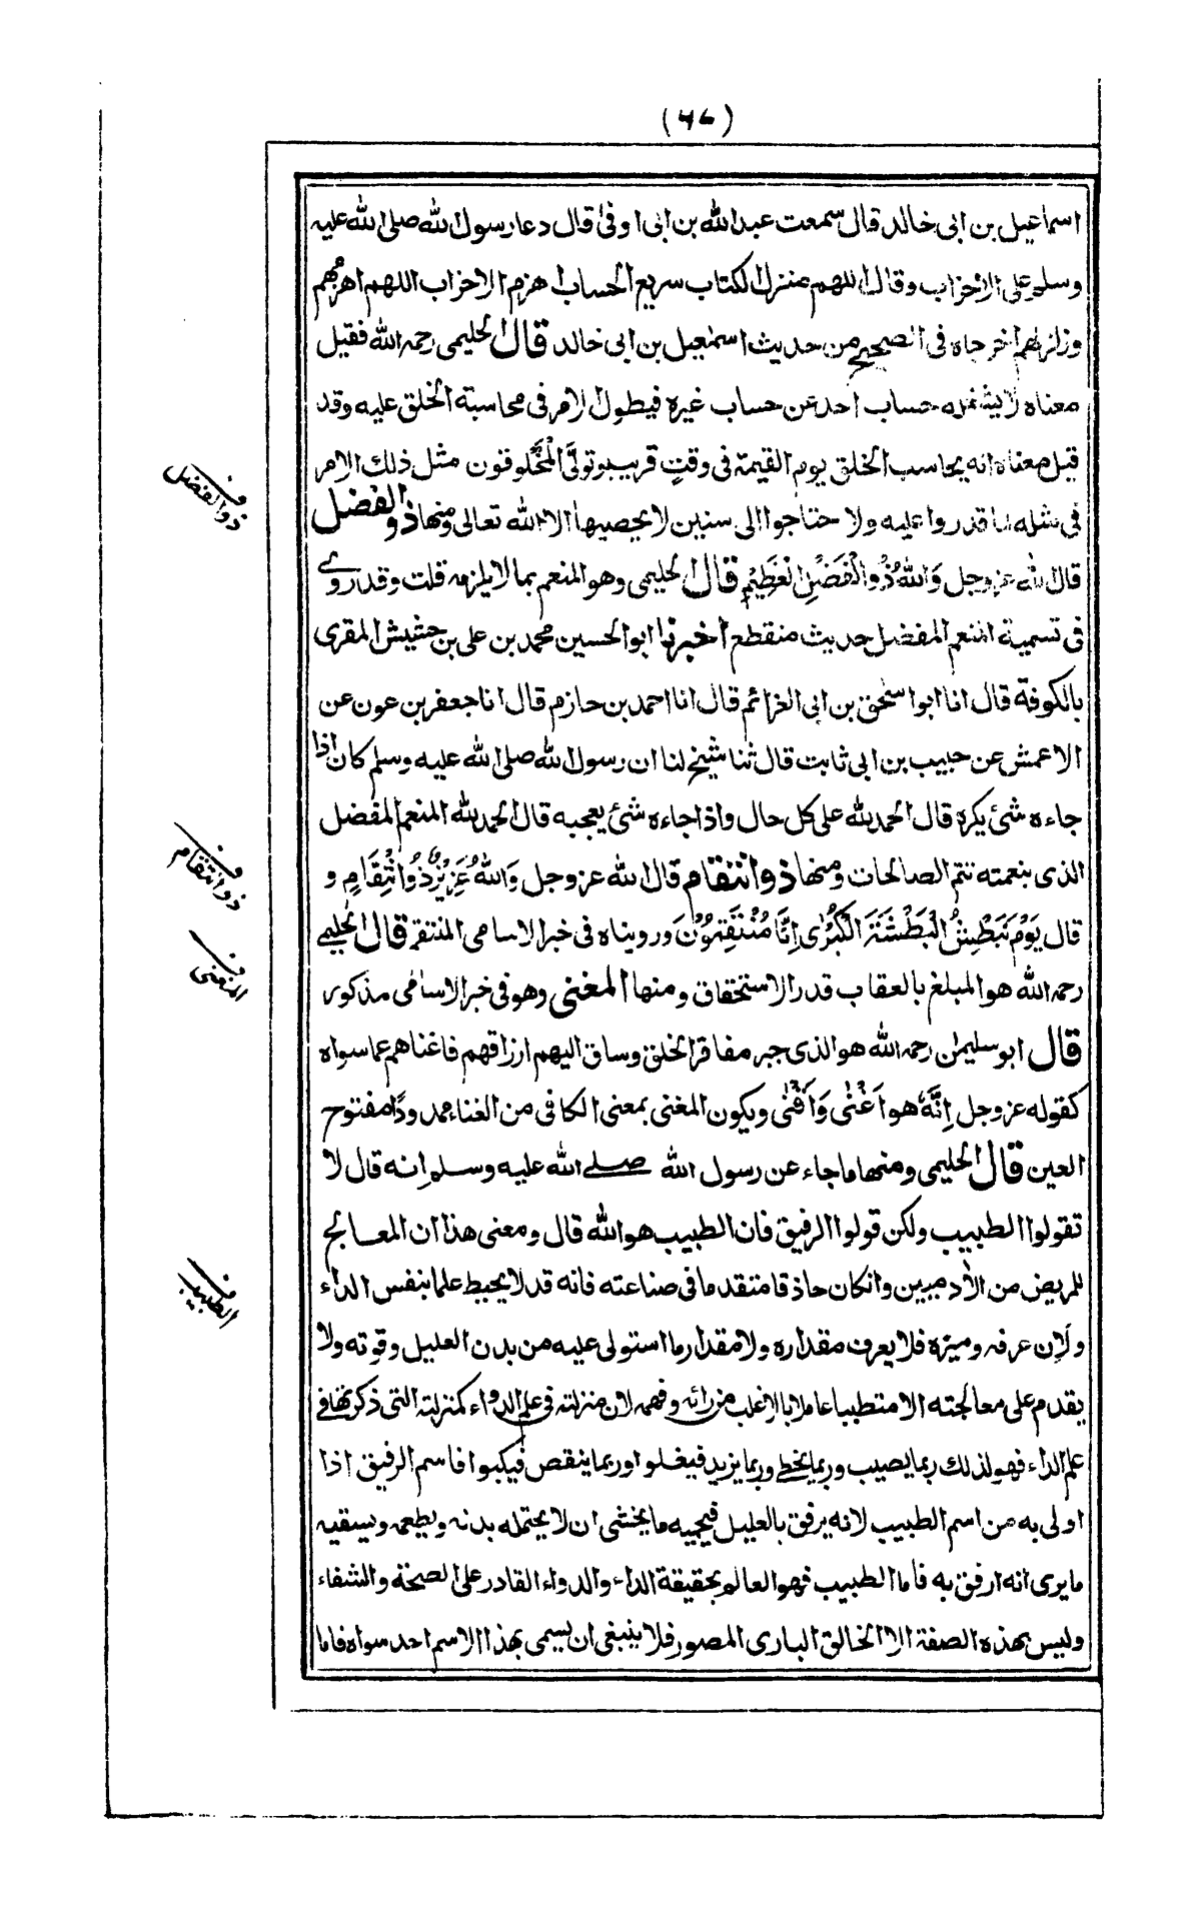 (۶۷)
اسماعيل بن ابى خالد قال سمعت عبدالله بن ابى اوفى قال دعا رسول الله صلى الله عليه
وسلم على الاحزاب وقال اللهم منزل الكتاب سريع الحساب اهزم الاحزاب اللهم اهزمهم
وزلزلهم اخرجاه فى الصحيح من حديث اسمعيل بن ابى خالد قال الحليمى رحمه الله فقيل
معناه لا يشغله حساب احد عن حساب غيره فيطول الامر فى محاسبة الخلق عليه وقد
قيل معناه انه يحاسب الخلق يوم القيمة فى وقتٍ قريب لو تولَّى المخلوقون مثل ذلك الامر
فى مثله لما قدروا عليه ولا حتاجوا الى سنين لا يحصيها الا الله تعالى ومنها ذو الفضل
ذوالفضل
قال الله عز وجل وَاللهُ ذُو الْفَضْلِ الْعَظِيْمِ قال الحليمى وهو المنعم بما لا يلزمه قلت وقد روے
فى تسمية المنعم المفضل حديث منقطع اخبرنا ابو الحسين محمد بن على بن حشيش المقرى
بالكوفة قال انا ابو اسحق بن ابى العزائم قال انا احمد بن حازم قال انا جعفر بن عون عن
الاعمش عن حبيب بن ابى ثابت قال ثنا شيخ لنا ان رسول الله صلى الله عليه وسلم كان اذا
جاءه شئ يكره قال الحمد لله على كل حال واذا جاءه شئ يعجبه قال الحمد لله المنعم المفضل
الذى بنعمته تتم الصالحات ومنها ذوانتقام قال الله عز وجل وَاللهُ عَزِيْزٌ ذُوانْتِقَامٍ و
ذوانتقام
قال يَوْمَ نَبْطِشُ الْبَطْشَةَ الْكُبْرٰى اِنَّا مُنْتَقِمُوْنَ ورويناه فى خبر الاسامى المنتقم قال الحليمے
رحمه الله هو المبلغ بالعقاب قدر الاستحقاق ومنها المغنى وهو فى خبر الاسامى مذكور
المغنى
قال ابو سليمن رحمه الله هو الذى جبر مفاقر الخلق وساق اليهم ارزاقهم فاغناهم عما سواه
كقوله عز وجل اِنَّهٗ هو اَغْنٰى وَاَقْنٰى ويكون المغنى بمعنى الكافى من الغناء ممدودًا مفتوح
العين قال الحليمى ومنها ما جاء عن رسول الله صلے الله عليه وسلم انه قال لا
تقولوا الطبيب ولكن قولوا الرفيق فان الطبيب هو الله قال ومعنى هذا ان المعالج
للمريض من الآدميين وانكان حاذقا متقدما فى صناعته فانه قد لا يحيط علما بنفس الداء
الطبيب
ولان عرفه وميزه فلا يعرف مقداره ولا مقدار ما استولى عليه من بدن العليل وقوته ولا
يقدم على معالجته الا متطببا عاملا بالاغلب من رائه وفهمه لان منزلته فى علم الدواء كمنزلته التى ذكرنهافے
علم الداء فهو لذلك ربما يصيب وربما يخطے وربما يزيد فيغلو او ربما ينقص فيكبوا فاسم الرفيق اذا
اولى به من اسم الطبيب لانه يرفق بالعليل فيحميه ما يخشى ان لا يحتمله بدنه ويطعمه ويسقيه
ما يرى انه ارفق به فاما الطبيب فهو العالم بحقيقة الداء والدواء القادر على الصحة والشفاء
وليس بهذه الصفة الا الخالق البارى المصور فلا ينبغى ان يسمى بهذا الاسم احد سواه فاما